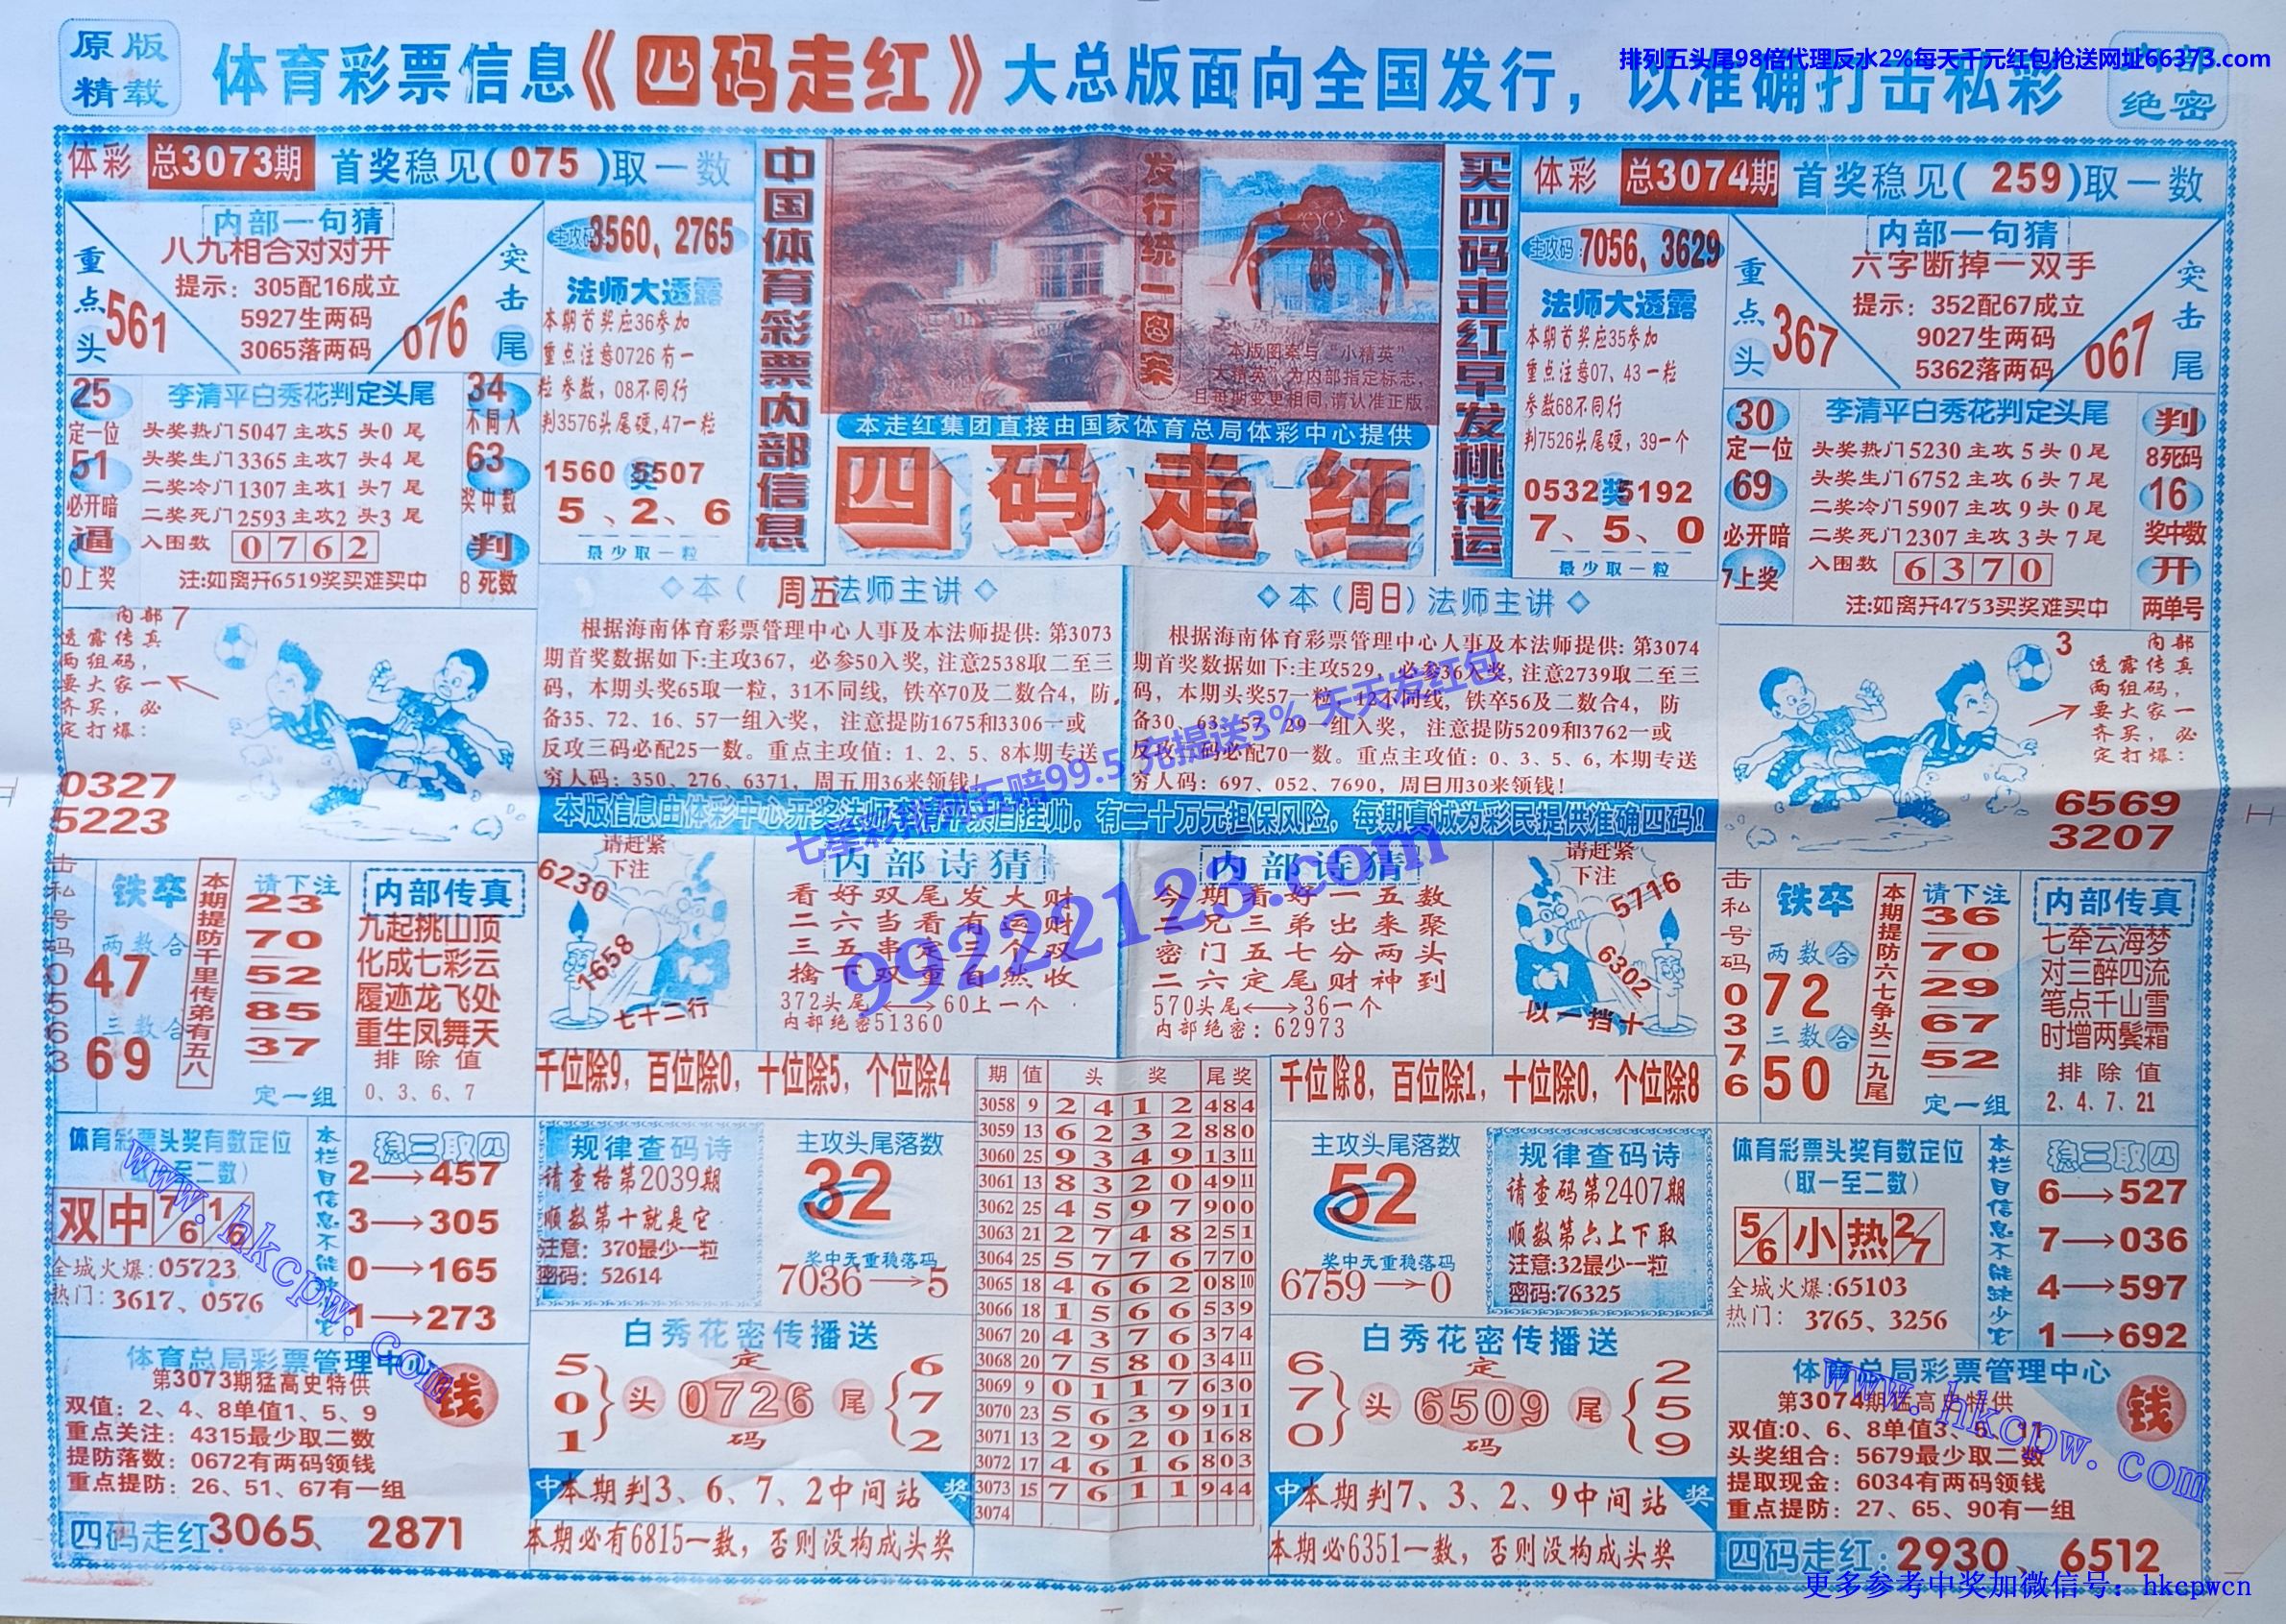 原版
精载
体育彩票信息《四码走红》大总版面向全国发行，以准确打击私彩
排列五头尾98倍代理反水2%每天千元红包抢送网址66373.com
内部
绝密
体彩 总3073期 首奖稳见(075)取一数
内部一句猜
八九相合对对开
提示：305配16成立
5927生两码
3065落两码
重点头
561
突击尾
076
主攻码 3560、2765
法师大透露
本期首奖应36参加
重点注意0726有一
粒参数，08不同行
判3576头尾硬,47一粒
1560 奖 5507
5、2、6
最少取一粒
25
定一位
51
必开暗
逼
0上奖
李清平白秀花判定头尾
头奖热门5047主攻5 头0 尾
头奖生门3365主攻7 头4 尾
二奖冷门1307主攻1 头7 尾
二奖死门2593主攻2 头3 尾
入围数 0762
注:如离开6519奖买难买中
34
不同入
63
奖中数
判
8死数
中国体育彩票内部信息
发行统一图案
本版图案与“小精英”
“大精英”为内部指定标志，
且每期变更相同,请认准正版
本走红集团直接由国家体育总局体彩中心提供
四码走红
买四码走红早发桃花运
体彩 总3074期 首奖稳见(259)取一数
主攻码：7056、3629
法师大透露
本期首奖应35参加
重点注意07、43一粒
参数68不同行
判7526头尾硬，39一个
0532 奖 5192
7、5、0
最少取一粒
内部一句猜
六字断掉一双手
提示：352配67成立
9027生两码
5362落两码
重点头
367
突击尾
067
30
定一位
69
必开暗
7上奖
李清平白秀花判定头尾
头奖热门5230主攻5头0尾
头奖生门6752主攻6头7尾
二奖冷门5907主攻9头0尾
二奖死门2307主攻3头7尾
入围数 6370
注:如离开4753买奖难买中
判
8死码
16
奖中数
开
两单号
内部
透露传真
两组码，
要大家一
齐买，必
定打爆：
7
0327
5223
◇本（周五法师主讲◇
根据海南体育彩票管理中心人事及本法师提供：第3073
期首奖数据如下:主攻367，必参50入奖,注意2538取二至三
码，本期头奖65取一粒，31不同线,铁卒70及二数合4，防
备35、72、16、57一组入奖，注意提防1675和3306一或
反攻三码必配25一数。重点主攻值：1、2、5、8本期专送
穷人码：350、276、6371，周五用36来领钱！
◇本（周日）法师主讲◇
根据海南体育彩票管理中心人事及本法师提供：第3074
期首奖数据如下:主攻529，必参36入奖,注意2739取二至三
码，本期头奖57一粒，12不同线,铁卒56及二数合4，防
备30、63、57、29一组入奖，注意提防5209和3762一或
反攻三码必配70一数。重点主攻值：0、3、5、6,本期专送
穷人码：697、052、7690，周日用30来领钱！
3
内部
透露传真
两组码，
要大家一
齐买，必
定打爆：
6569
3207
本版信息由体彩中心开奖法师李清平亲自挂帅，有二十万元担保风险，每期真诚为彩民提供准确四码！
七星彩排列五赔99.5 充提送3% 天天发红包
99222123.com
击私号码05663
铁卒
两数合
47
三数合
69
本期提防千里传弟有五八
请下注
23
70
52
85
37
定一组
内部传真
九起挑山顶
化成七彩云
履迹龙飞处
重生凤舞天
排除值
0、3、6、7
请赶紧
下注
6230
1658
七十二行
内部诗猜
看好双尾发大财
二六当看有运财
三五串定三个双
擒下双重自然收
372头尾⟷60上一个
内部绝密51360
内部诗猜
今期看好一五数
二兄三弟出来聚
密门五七分两头
二六定尾财神到
570头尾⟷36一个
内部绝密：62973
请赶紧
下注
5716
6302
以一挡十
击私号码0376
铁卒
两数合
72
三数合
50
本期提防六七争头二九尾
请下注
36
70
29
67
52
定一组
内部传真
七牵云海梦
对三醉四流
笔点千山雪
时增两鬓霜
排除值
2、4、7、21
千位除9，百位除0，十位除5，个位除4
千位除8，百位除1，十位除0，个位除8
体育彩票头奖有数定位
至二数)
双中 7/6 1/6
全城火爆:05723
热门：3617、0576
本栏目信息不能缺少它
稳三取四
2→457
3→305
0→165
1→273
规律查码诗
请查格第2039期
顺数第十就是它
注意：370最少一粒
密码：52614
主攻头尾落数
32
奖中无重稳落码
7036→5
期 值 头 奖 尾奖
3058 9 2 4 1 2 484
3059 13 6 2 3 2 880
3060 25 9 3 4 9 1311
3061 13 8 3 2 0 4911
3062 25 4 5 9 7 900
3063 21 2 7 4 8 251
3064 25 5 7 7 6 770
3065 18 4 6 6 2 0810
3066 18 1 5 6 6 539
3067 20 4 3 7 6 374
3068 20 7 5 8 0 3411
3069 9 0 1 1 7 630
3070 23 5 6 3 9 911
3071 13 2 9 2 0 168
3072 17 4 6 1 6 803
3073 15 7 6 1 1 944
3074
主攻头尾落数
52
奖中无重稳落码
6759→0
规律查码诗
请查码第2407期
顺数第六上下取
注意:32最少一粒
密码:76325
体育彩票头奖有数定位
(取一至二数)
5/6 小热 2/7
全城火爆:65103
热门：3765、3256
本栏目信息不能缺少它
稳三取四
6→527
7→036
4→597
1→692
体育总局彩票管理中心
第3073期猛高史特供
双值：2、4、8单值1、5、9
重点关注：4315最少取二数
提防落数：0672有两码领钱
重点提防：26、51、67有一组
钱
四码走红：3065、2871
白秀花密传播送
501
头
定
0726
码
尾
672
中 本期判3、6、7、2中间站 奖
本期必有6815一数，否则没构成头奖
白秀花密传播送
670
头
定
6509
码
尾
259
中 本期判7、3、2、9中间站 奖
本期必6351一数，否则没构成头奖
体育总局彩票管理中心
第3074期猛高史特供
双值:0、6、8单值3、5、11
头奖组合：5679最少取二数
提取现金：6034有两码领钱
重点提防：27、65、90有一组
钱
四码走红：2930、6512
www.hkcpw.com
www.hkcpw.com
更多参考中奖加微信号：hkcpwcn